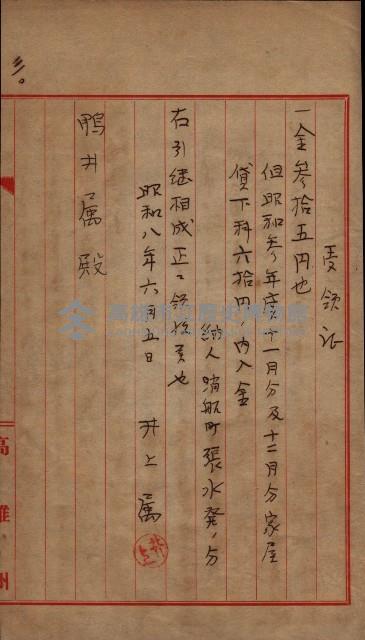 受領証
一金参拾五円也
但昭和参年度十一月分及十二月分家屋
貸下料六拾円ノ内入金
納人 哨船町 張水発ノ分
右引継相成正ニ領收候也
昭和八年六月五日
井上属
鴨井属殿
高雄州
高雄市立歷史博物館